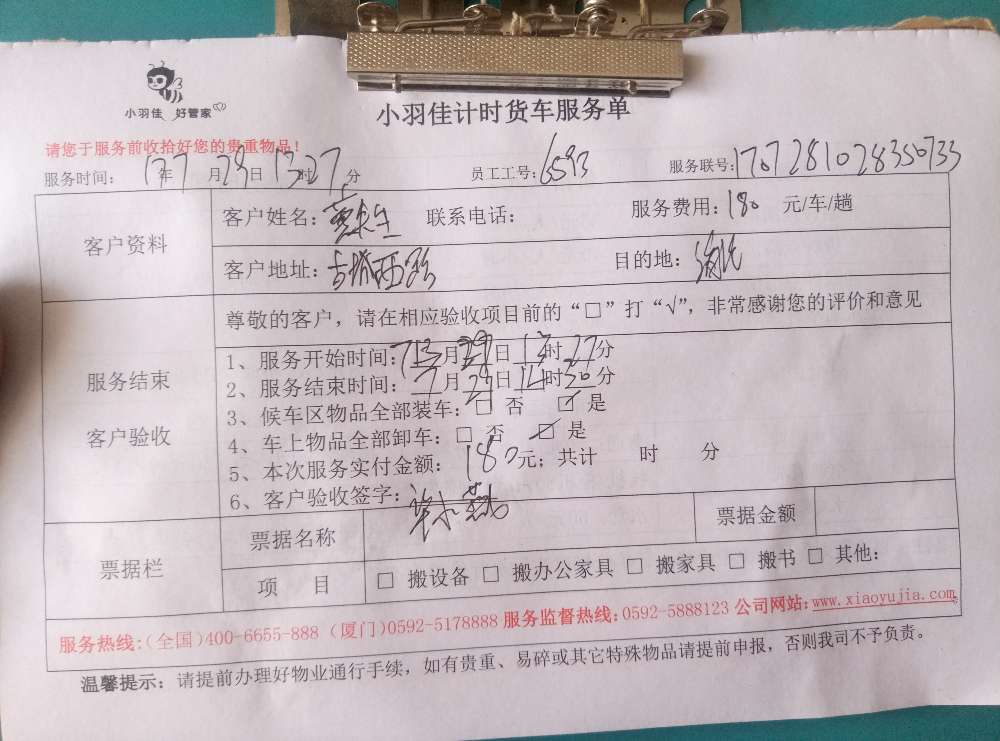 小羽佳 好管家
小羽佳计时货车服务单
请您于服务前收拾好您的贵重物品！
服务时间： 17年7月29日13时27分 员工工号：6593 服务联号：1707281028350733
客户资料
客户姓名： 联系电话： 服务费用：180 元/车/趟
客户地址：古城西路 目的地：
服务结束
客户验收
尊敬的客户，请在相应验收项目前的“□”打“√”，非常感谢您的评价和意见
1、服务开始时间：7月29日13时27分
2、服务结束时间：7月29日14时30分
3、候车区物品全部装车：□ 否 ☑ 是
4、车上物品全部卸车：□ 否 ☑ 是
5、本次服务实付金额：180元；共计 时 分
6、客户验收签字：
票据栏
票据名称 票据金额
项 目 □ 搬设备 □ 搬办公家具 □ 搬家具 □ 搬书 □ 其他：
服务热线：（全国）400-6655-888（厦门）0592-5178888 服务监督热线：0592-5888123 公司网站：www.xiaoyujia.com
温馨提示：请提前办理好物业通行手续，如有贵重、易碎或其它特殊物品请提前申报，否则我司不予负责。